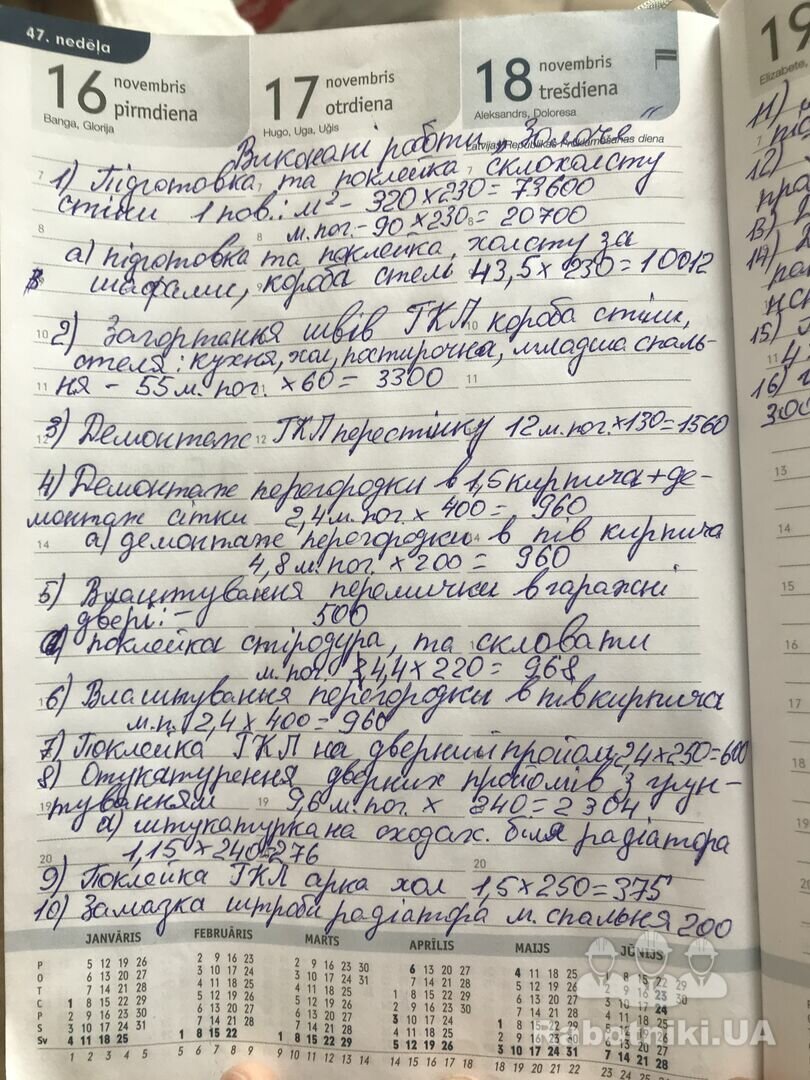 47. nedēļa
16 novembris pirmdiena
Banga, Glorija
17 novembris otrdiena
Hugo, Uga, Uģis
18 novembris trešdiena
Aleksandrs, Doloresa
Latvijas Republikas Proklamēšanas diena
19
Elizabete,
Виконані роботи
1) Підготовка та поклейка склохолсту
стіни 1 пов.: м² - 320 x 230 = 73600
м. пог. - 90 x 230 = 20700
а) підготовка та поклейка, холсту за
шафами, короба стель 43,5 x 230 = 10012
2) Загортання швів ГКЛ короба стіни,
стеля: кухня, хол, постирочна, младша спаль-
ня - 55 м. пог. x 60 = 3300
3) Демонтаж ГКЛ перестінку 12 м. пог. x 130 = 1560
4) Демонтаж перегородки в 1,5 кирпича + де-
монтаж сітки 2,4 м. пог. x 400 = 960
а) демонтаж перегородки в пів кирпича
4,8 м. пог. x 200 = 960
5) Влаштування перемички в гаражні
двері: - 500
а) поклейка стіродура, та скловати
м. пог. 4,4 x 220 = 968
6) Влаштування перегородки в пів кирпича
м.п. 2,4 x 400 = 960
7) Поклейка ГКЛ на дверний пройом 2,4 x 250 = 600
8) Отукатурення дверних пройомів з грун-
туванням 9,6 м. пог. x 240 = 2304
а) штукатурка на сходах біля радіатора
1,15 x 240 = 276
9) Поклейка ГКЛ арка хол 1,5 x 250 = 375
10) Замазка штроби радіатора м. спальня 200
11)
12)
13)
14)
15)
16)
JANVĀRIS FEBRUĀRIS MARTS APRĪLIS MAIJS JŪNIJS
P 5 12 19 26
O 6 13 20 27
T 7 14 21 28
C 1 8 15 22 29
P 2 9 16 23 30
S 3 10 17 24 31
Sv 4 11 18 25
1 2 3 4 5
2 9 16 23
3 10 17 24
4 11 18 25
5 12 19 26
6 13 20 27
7 14 21 28
1 8 15 22
5 6 7 8 9
2 9 16 23 30
3 10 17 24 31
4 11 18 25
5 12 19 26
6 13 20 27
7 14 21 28
1 8 15 22 29
9 10 11 12 13 14
6 13 20 27
7 14 21 28
1 8 15 22 29
2 9 16 23 30
3 10 17 24
4 11 18 25
5 12 19 26
14 15 16 17 18
4 11 18 25
5 12 19 26
6 13 20 27
7 14 21 28
1 8 15 22 29
2 9 16 23 30
3 10 17 24 31
18 19 20 21 22
1 8 15 22 29
2 9 16 23 30
3 10 17 24
4 11 18 25
5 12 19 26
6 13 20 27
7 14 21 28
Rabotniki.UA